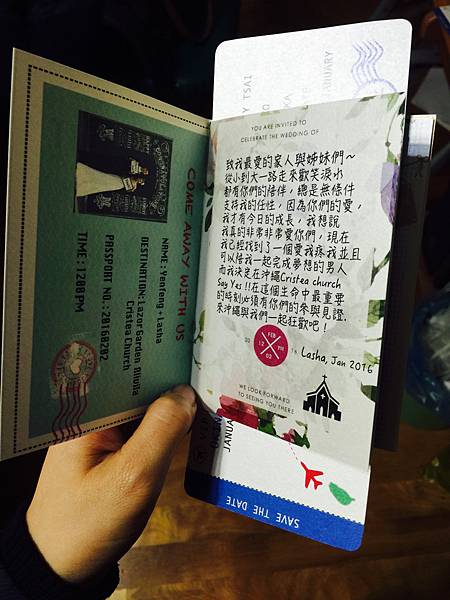 COME AWAY WITH US
NAME: Yenfeng + Lasha
DESTINATION: Lazor Garden Alluiia
Cristea Church
PASSPORT NO.: 20160202
TIME: 1200PM
Y TSAI
JANUARY
YOU ARE INVITED TO
CELEBRATE THE WEDDING OF
致我最愛的家人與姊妹們~
從小到大一路走來歡笑淚水
都有你們的陪伴，總是無條件
支持我的任性，因為你們的愛，
我才有今日的成長，我想說
我真的非常非常愛你們，現在
我已經找到了一個愛我疼我並且
可以陪我一起完成夢想的男人
而我決定在沖繩Cristea church
Say Yes !! 在這個生命中最重要
的時刻必須有你們的參與見證.
來沖繩與我們一起狂歡吧！
FEB
12
02
Lasha, Jan 2016
WE LOOK FORWARD
TO SEEING YOU THERE
SAVE THE DATE